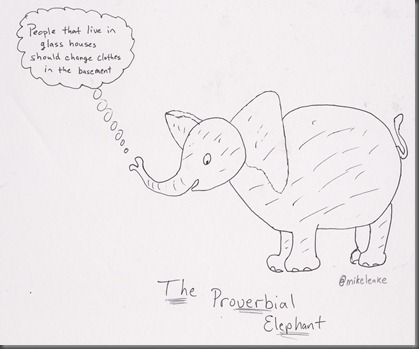 People that live in
glass houses
should change clothes
in the basement
@mikeleake
The Proverbial
Elephant